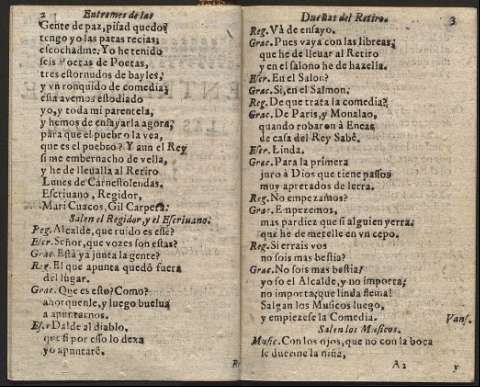 2 Entremes de las
Gente de paz, pisad quedo;
tengo yo las patas recias;
escochadme. Yo he tenido
seis Poetas de Poetas,
tres estornudos de bayles,
y vn ronquido de comedia;
esta avemos estodiado
yo, y toda mi parentela,
y hemos de ensayarla agora,
para que el puebro la vea,
que es el puebro? Y aun el Rey
si me embernacho de vella,
y he de lleualla al Retiro
Lunes de Carnestolendas,
Escriuano, Regidor,
Mari Cuacos, Gil Carpeta.
Salen el Regidor, y el Escriuano.
Reg. Alcalde, que ruido es este?
Escr. Señor, que vozes son estas?
Grac. Está ya junta la gente?
Reg. El que apunta quedó fuera
del lugar.
Grac. Que es esto? Como?
ahorquenle, y luego buelua
a apuntarnos.
Esc. Dalde al diablo,
que si por esso lo dexa
yo apuntaré.
Dueñas del Retiro. 3
Reg. Vá de ensayo.
Grac. Pues vaya con las libreas,
que he de lleuar al Retiro
y en el salono he de hazella.
Escr. En el Salon?
Grac. Si, en el Salmon.
Reg. De que trata la comedia?
Grac. De Paris, y Monalao,
quando robaron à Eneas
de casa del Rey Sabé.
Escr. Linda.
Grac. Para la primera
juro à Dios que tiene passos
muy apretados de letra.
Reg. No empezamos?
Grac. Empezemos,
mas pardiez que si alguien yerra,
que he de meterle en vn cepo.
Reg. Si errais vos
no sois mas bestia?
Grac. No sois mas bestia?
yo so el Alcalde, y no importa;
no importa, que linda flema!
Salgan los Musicos luego,
y empiezese la Comedia. Vans.
Salen los Musicos.
Music. Con los ojos, que no con la boca
se duerme la niña,
A 2 y